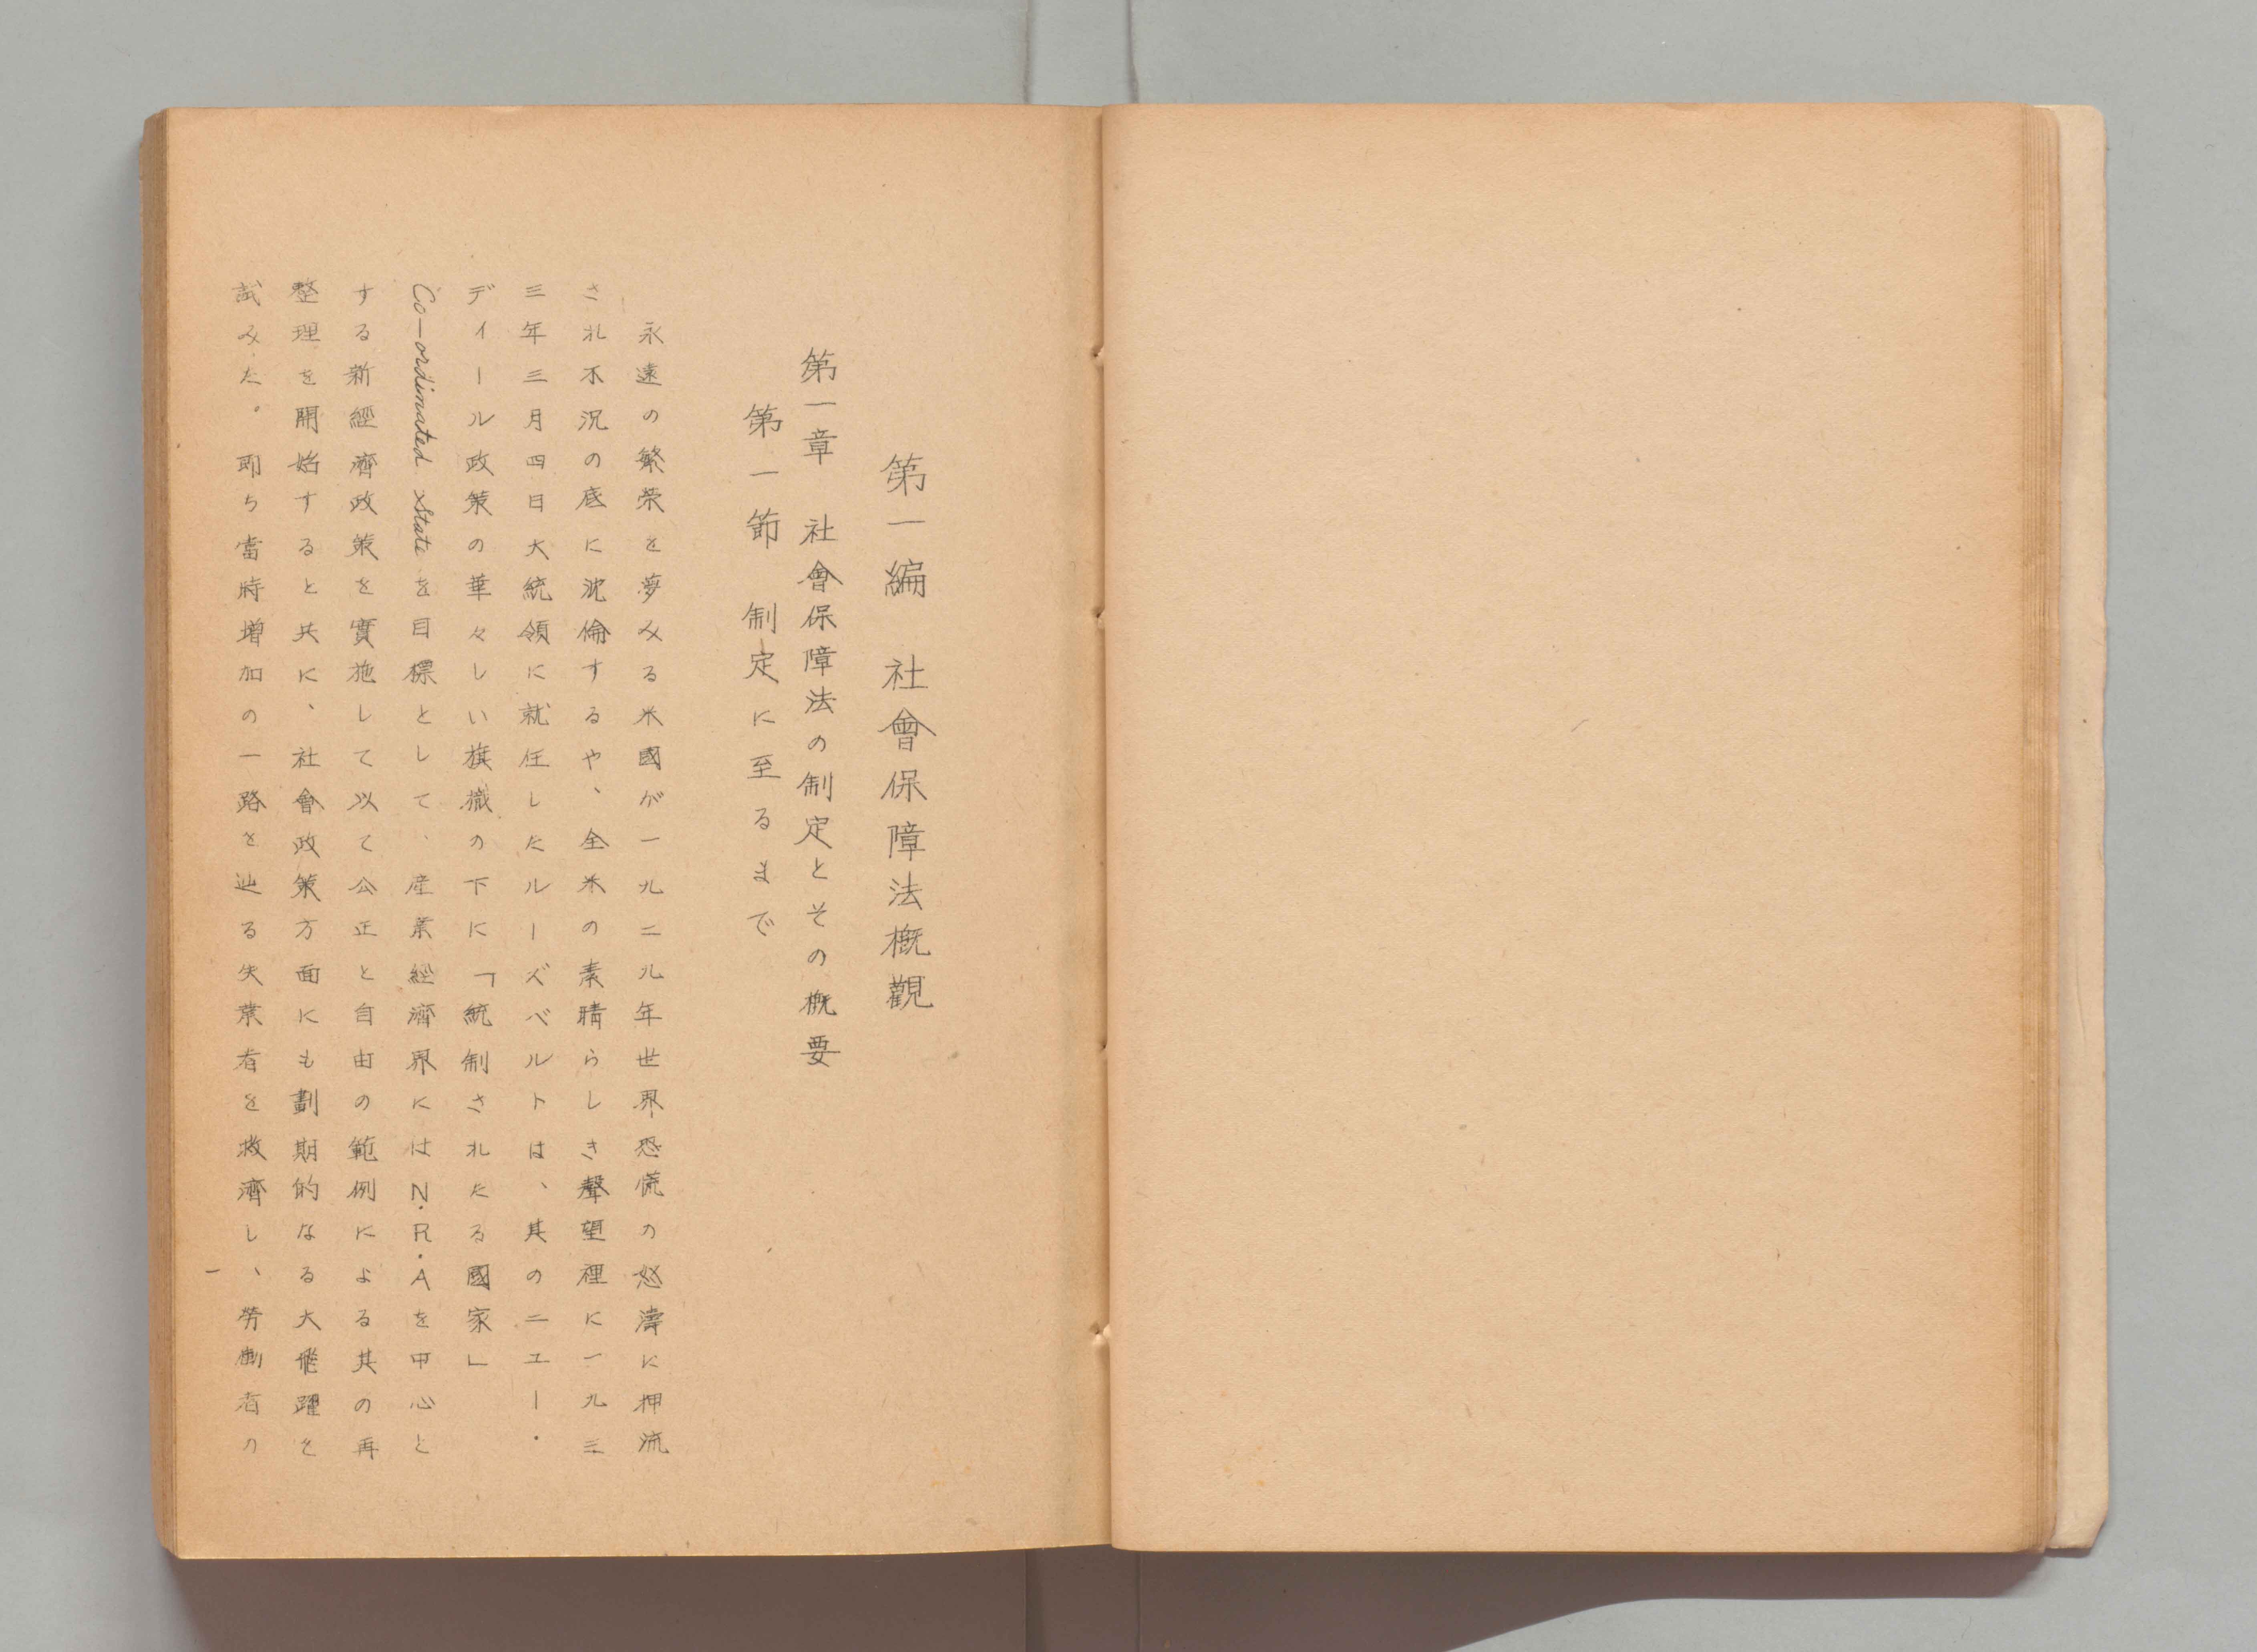 第一編　社會保障法概觀
第一章　社會保障法の制定とその概要
第一節　制定に至るまで
永遠の繁荣を夢みる米國が一九二九年世界恐慌の怒濤に押流
され不況の底に沈倫するや、全米の素晴らしき聲望裡に一九三
三年三月四日大統領に就任したルーズベルトは、其のニユー・
ディール政策の華々しい旗幟の下に「統制されたる國家」
Co-ordinated Stateを目標として、産業經濟界にはN.R.Aを中心と
する新經濟政策を實施して以て公正と自由の範例による其の再
整理を開始すると共に、社會政策方面にも劃期的なる大飛躍を
試みた。即ち當時増加の一路を辿る失業者を救濟し、勞働者の
一